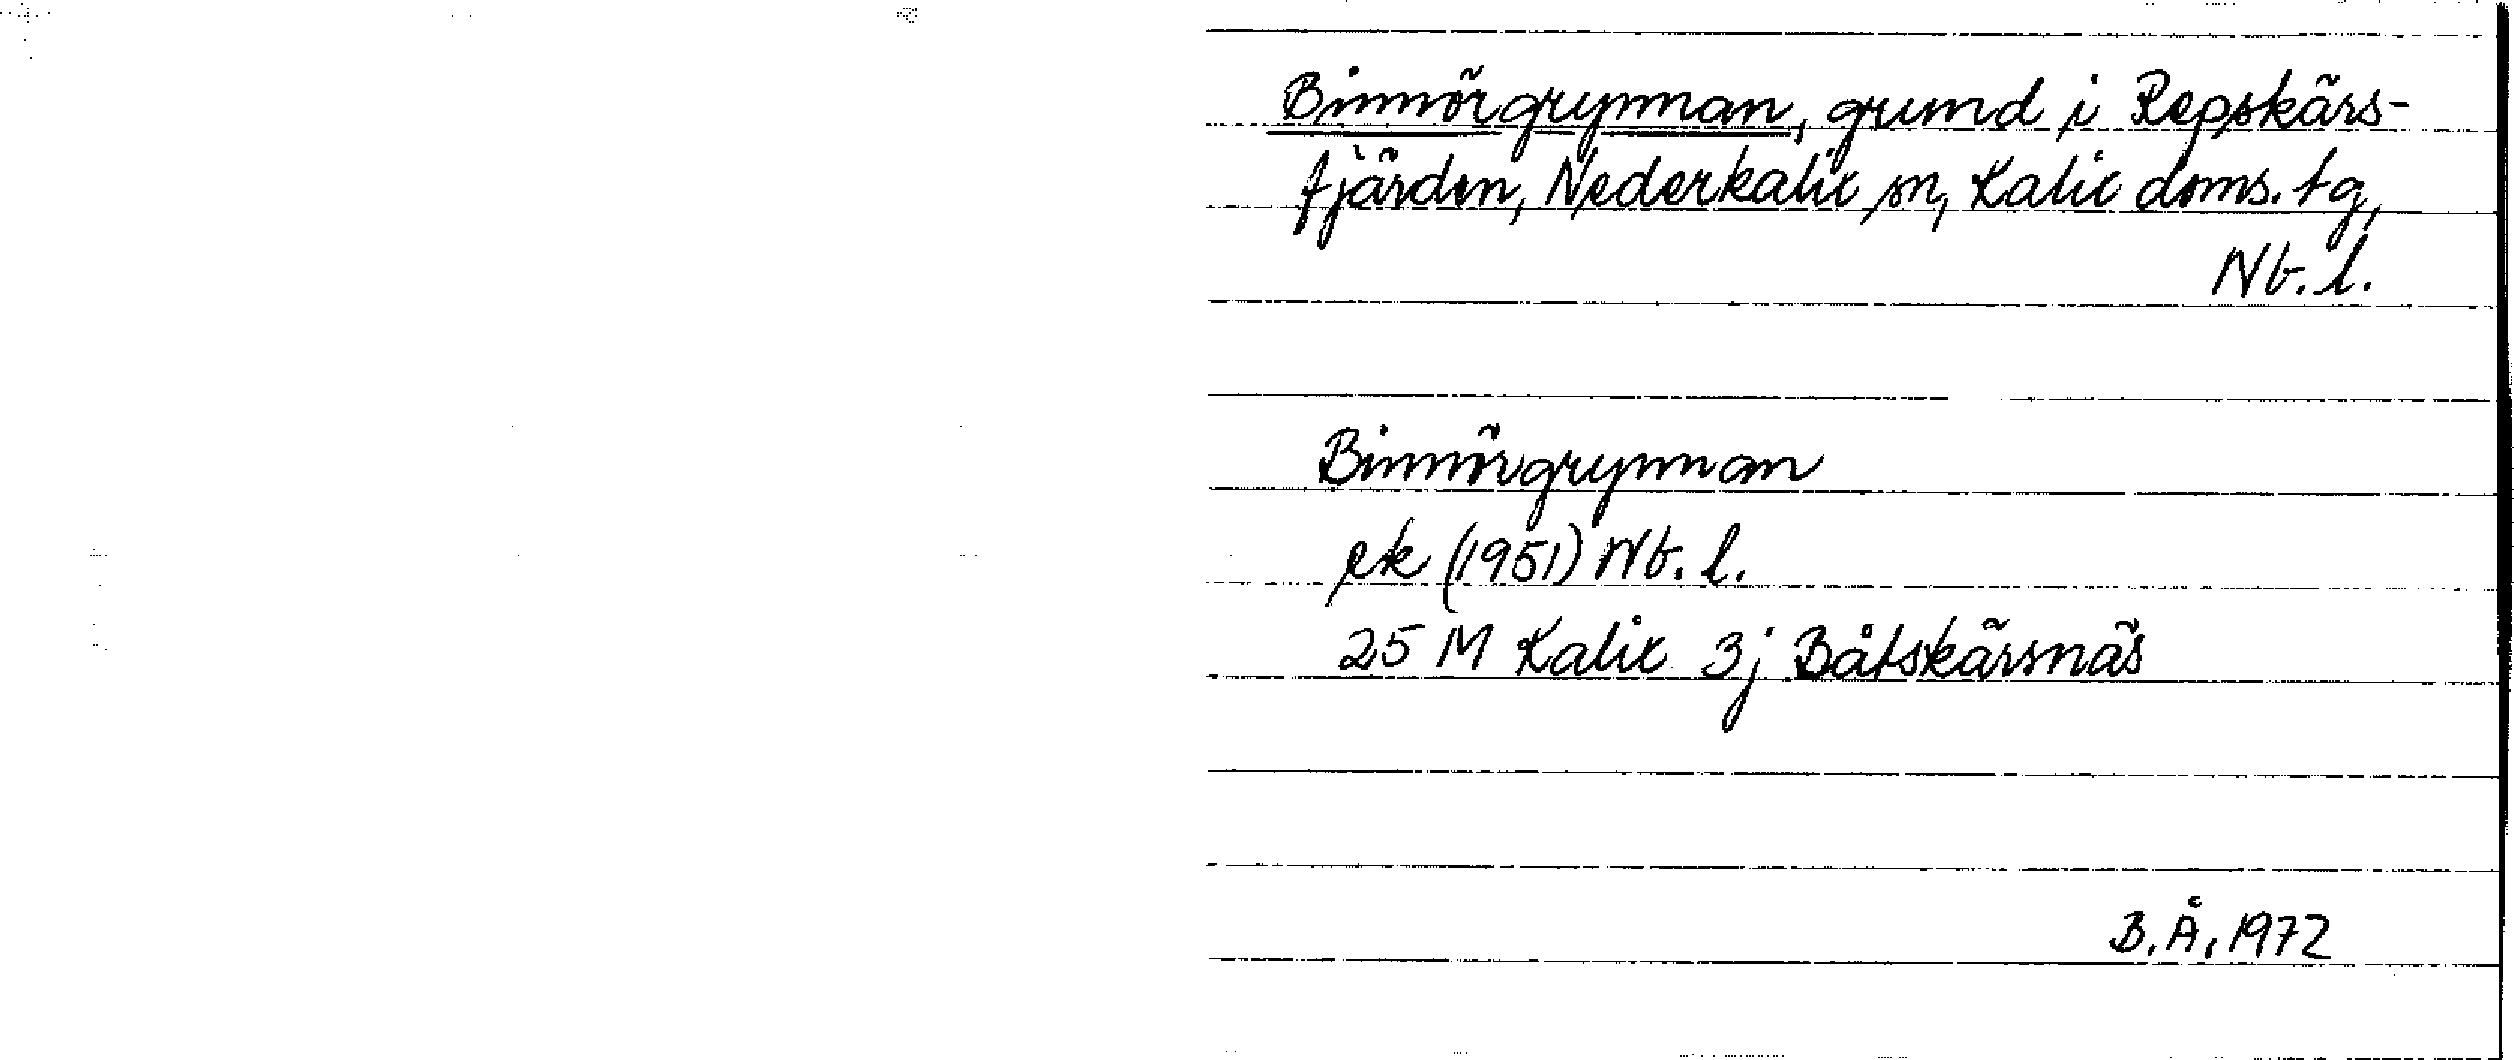 Binnörgrynnan, grund i Repskärs-
fjärden, Nederkalix sn, Kalix doms. tg,
Nb. l.
Binnörgrynnan
ek (1951) Nb. l.
25 M Kalix 3j Båtskärsnäs
B. Å. 1972